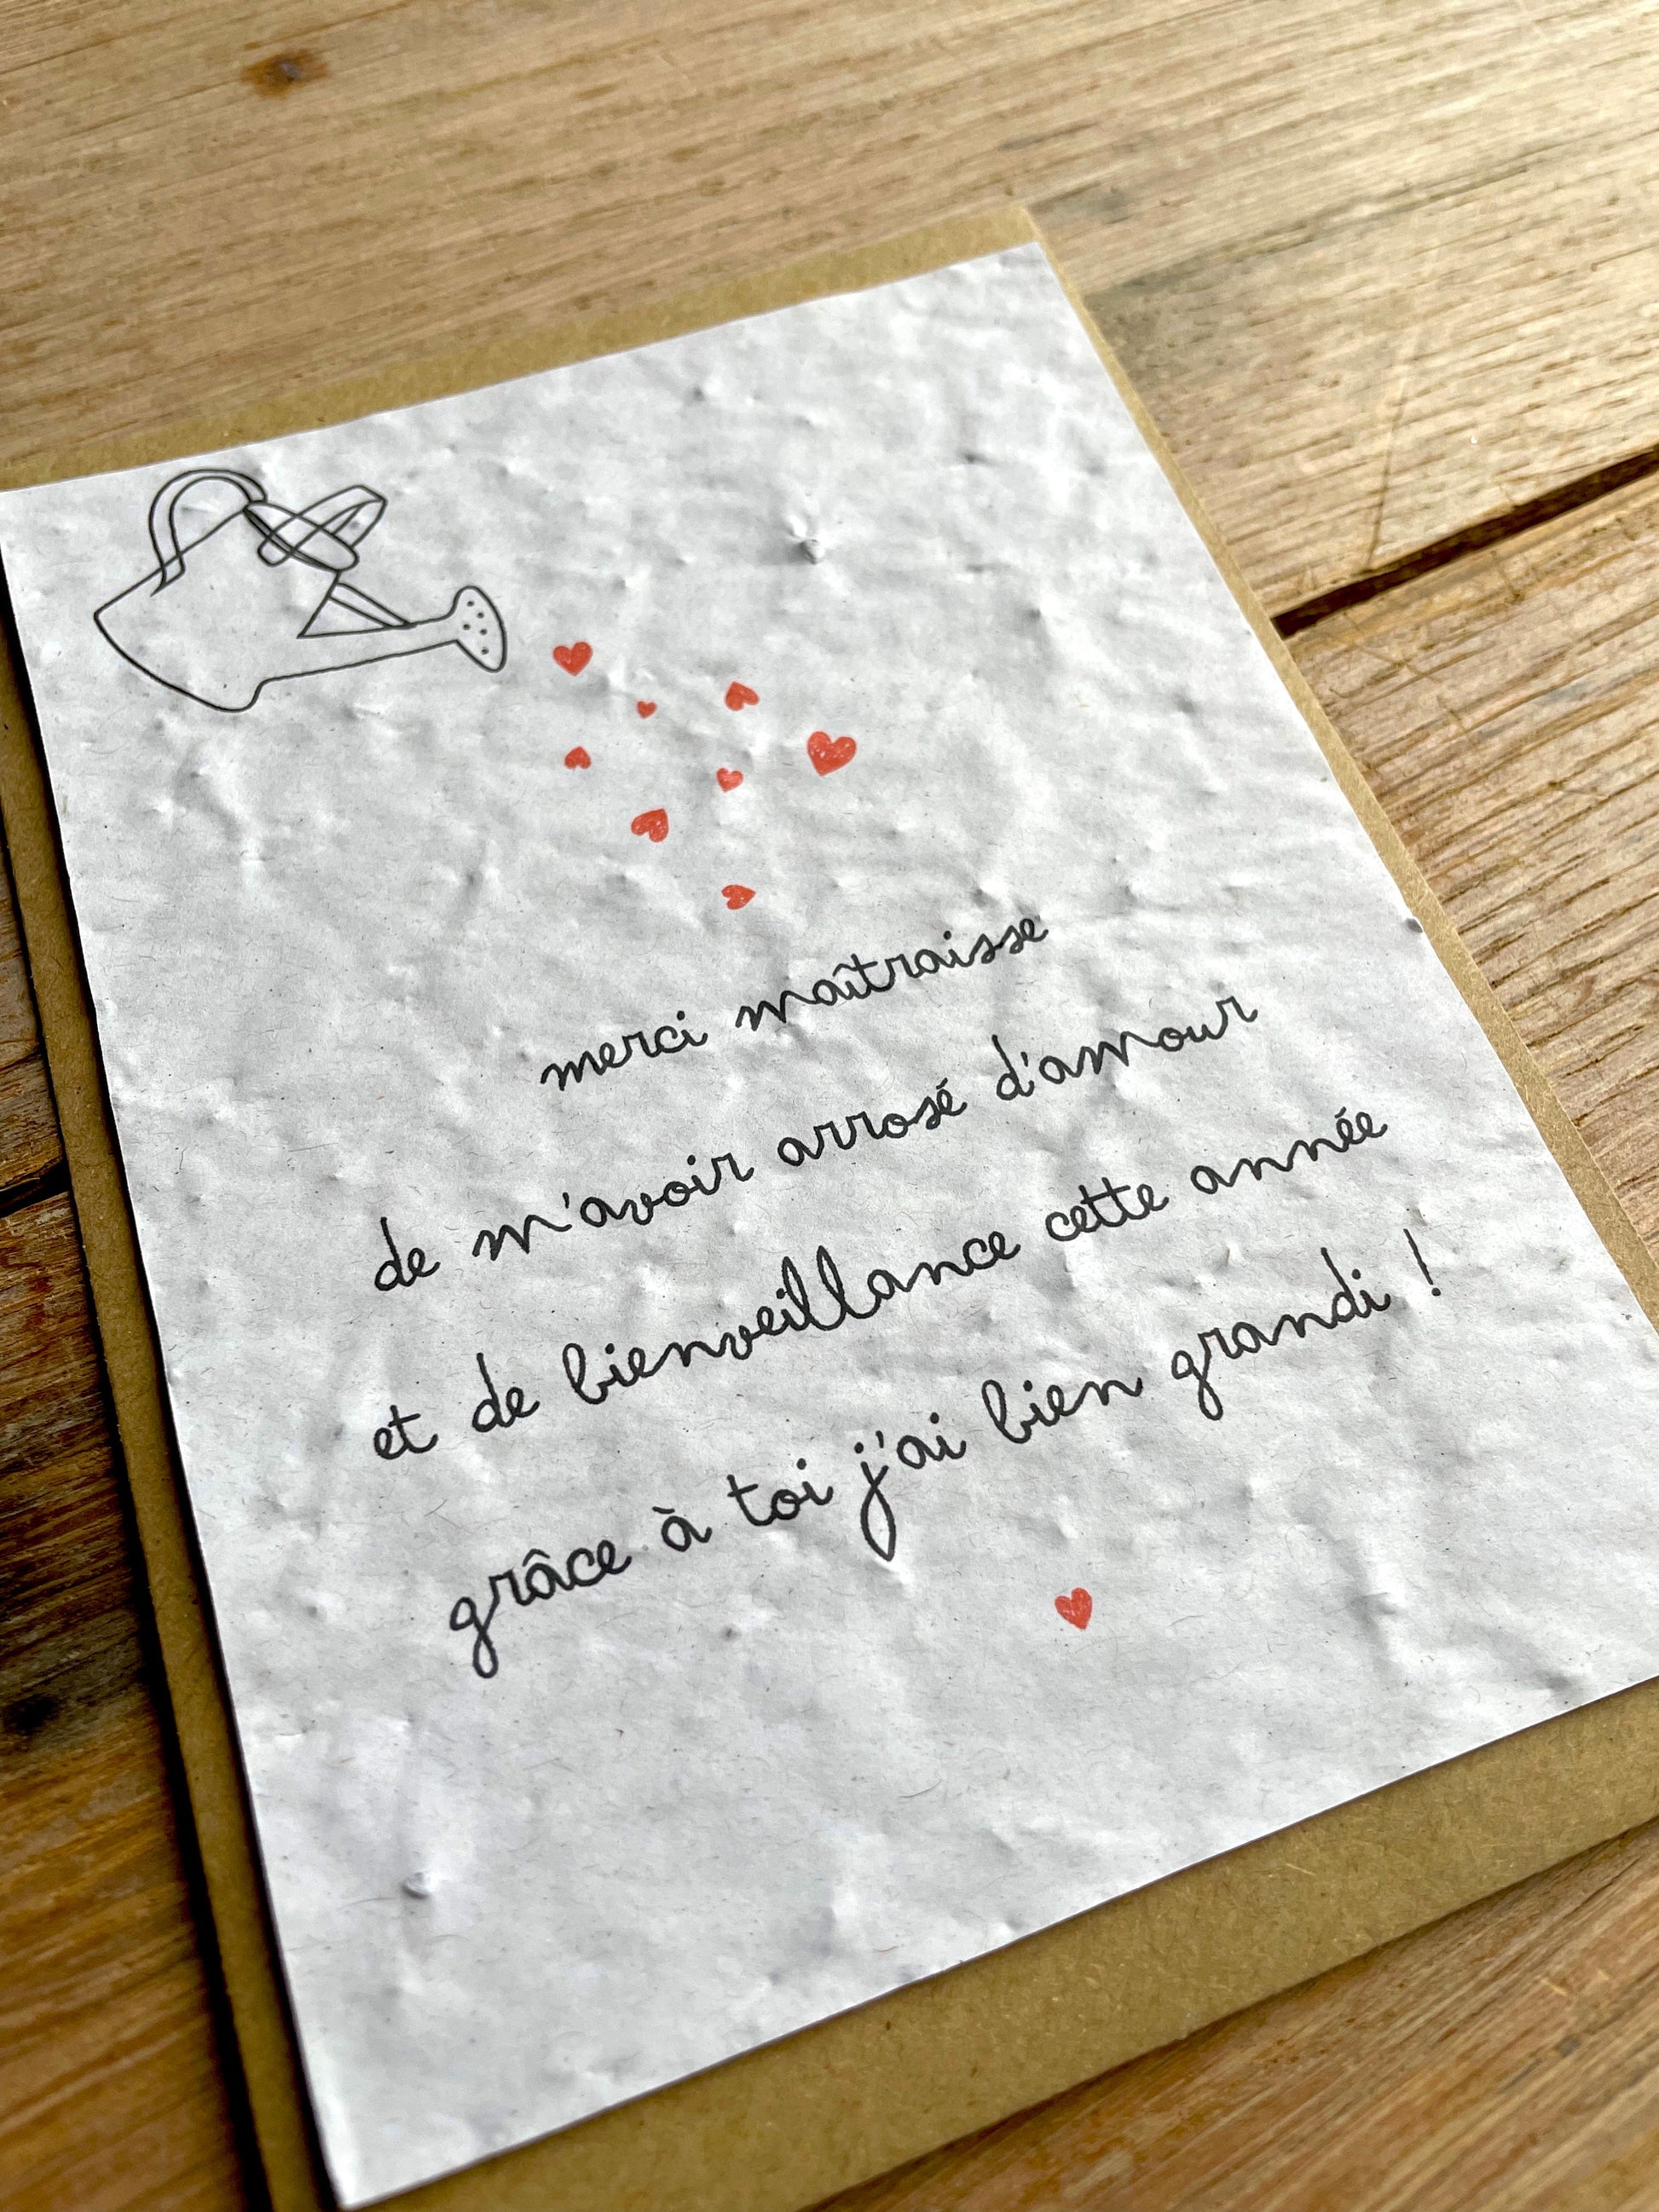 merci maîtraisse
de m'avoir arrosé d'amour
et de bienveillance cette année
grâce à toi j'ai bien grandi !